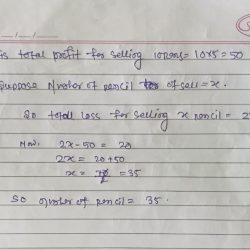 is total profit for selling 10 pens = 10x5 = 50
suppose n/mber of pencil of sell = x.
So total loss for selling x pencil = 2
Now. 2x - 50 = 20
2x = 20 + 50
x = 70/2 = 35
So number of pencil = 35.